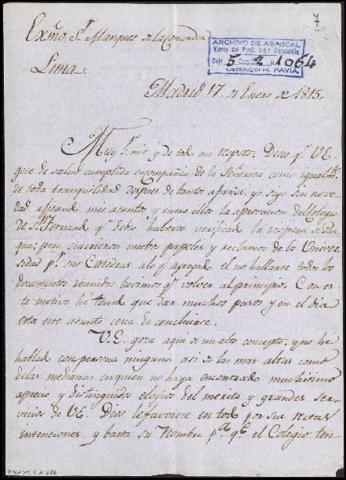 7
Exmo Sr. Marques de la Concordia
Lima.
ARCHIVO DE ABASCAL
Virrey del Perú
5 2 1064
Madrid 17 de Enero de 1815.
Muy Sr. mio y de todo mi respeto: Deseo qe. V.E.
goze de salud cumplida en compañia de la Señorita como igualmte.
de toda tranquilidad despues de tantos afanes, yo sigo sin nove-
dad agitando mis asuntos, y entre ellos la aprovacion del Colegio
de Sn. Fernando qe. debio haberse verificado la vispera de Pas-
qua; pero ocurrieron nuebos papeles y reclamos de la Univer-
sidad pr. sus Catedras a lo qe. agregado el no hallarse todos los
documentos reunidos tuvimos qe. volver al principio. Con es-
te motivo he tenido que dar muchos pasos y en el dia
esta este asunto cerca de concluirse.
V.E. goza aqui de un alto concepto, y no he
hablado con persona ninguna asi de las mas altas como
de las medianas en quien no haya encontrado muchisimo
aprecio y distinguidos elogios del merito y grandes ser-
vicios de V.E. Dios le favorece en todo por sus rectas
intenciones, y basta su Nombre pa. qe. el Colegio ten-